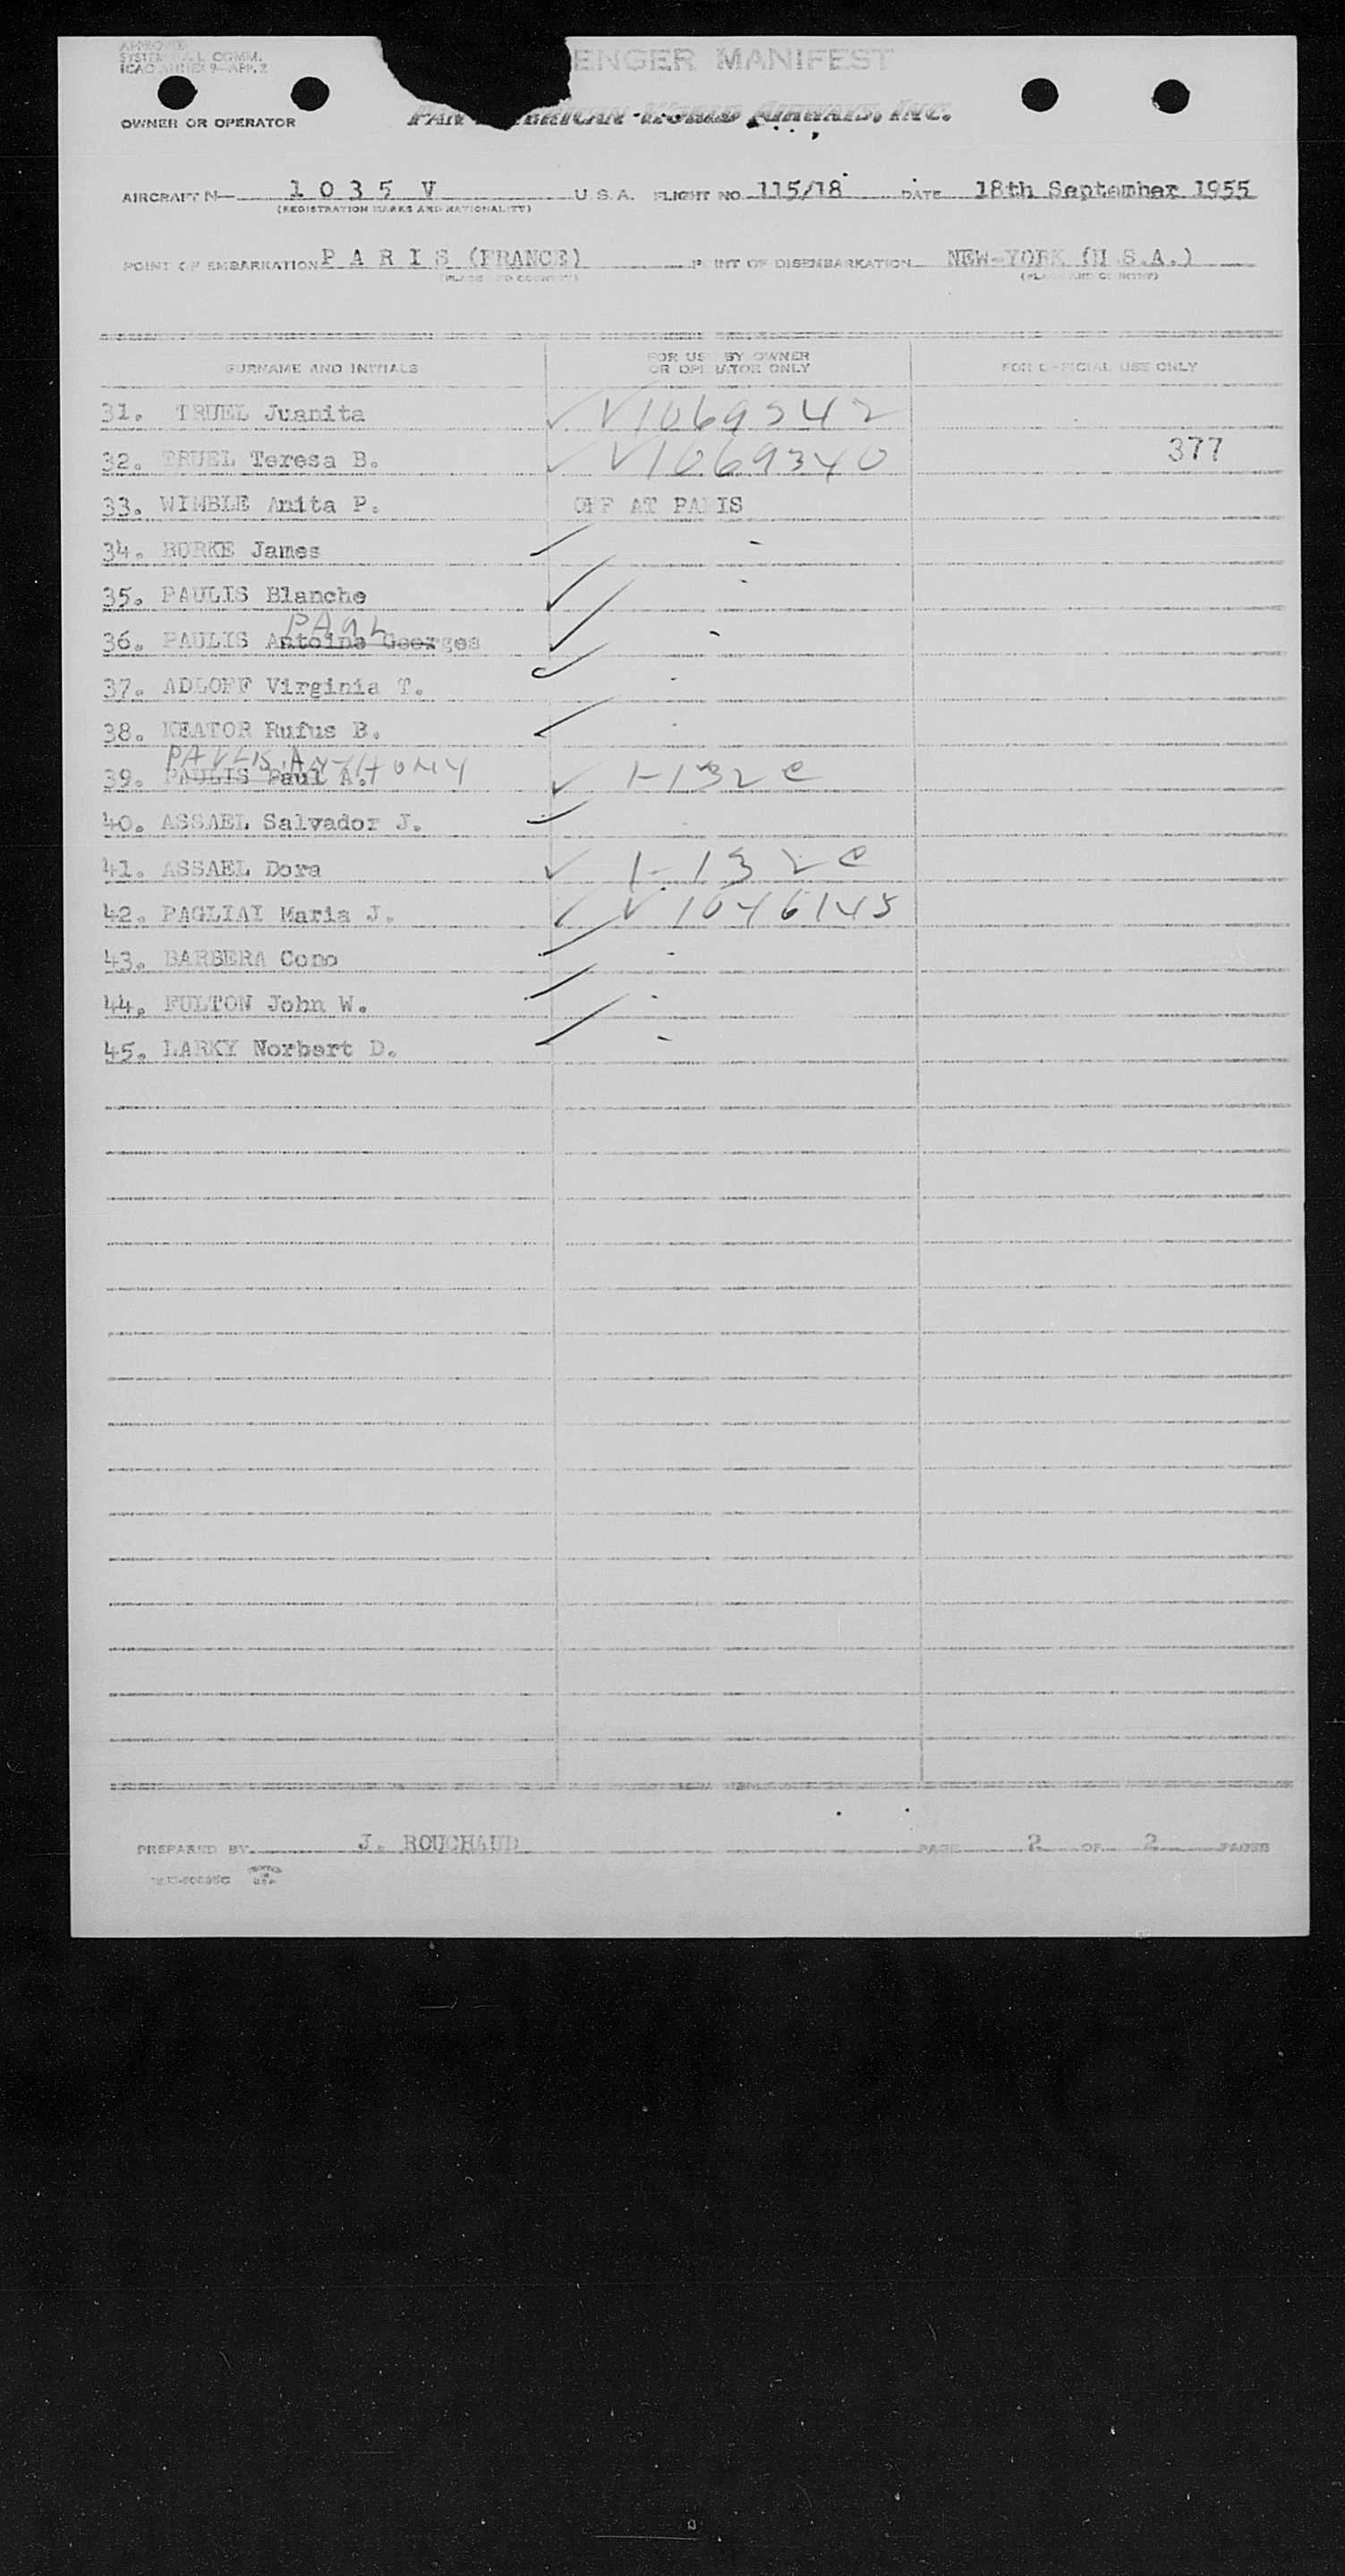 APPROVED
SYSTEM P.A.L. COMM.
ICAO ANNEX 9-APP. 2
ENGER MANIFEST
OWNER OR OPERATOR PAN ERICAN WORLD AIRWAYS, INC.
AIRCRAFT N— 1 0 3 5 V U.S.A. FLIGHT NO. 115/18 DATE 18th September 1955
(REGISTRATION MARKS AND NATIONALITY)
POINT OF EMBARKATION P A R I S (FRANCE) POINT OF DISEMBARKATION NEW-YORK (U.S.A.)
(PLACE AND COUNTRY) (PLACE AND COUNTRY)
SURNAME AND INITIALS FOR USE BY OWNER OR OPERATOR ONLY FOR OFFICIAL USE ONLY
31. TRUEL Juanita ✓ V1069342
32. TRUEL Teresa B. ✓ V1069340 377
33. WIMBLE Anita P. OFF AT PARIS
34. BORKE James ✓ -
35. PAULIS Blanche ✓ -
PAUL
36. PAULIS Antoine Georges ✓ -
37. ADLOFF Virginia T. ✓ -
38. KEATOR Rufus B. ✓ -
PAULIS ANTHONY
39. PAULIS Paul A. ✓ 1-132 C
40. ASSAEL Salvador J. ✓
41. ASSAEL Dora ✓ 1-132 C
42. PAGLIAI Maria J. ✓ V1046145
43. BARBERA Cono ✓ -
44. FULTON John W. ✓ -
45. LARKY Norbert D. ✓ -
PREPARED BY J. ROUCHAUD PAGE 2 OF 2 PAGES
PRINTED
IN
U.S.A.